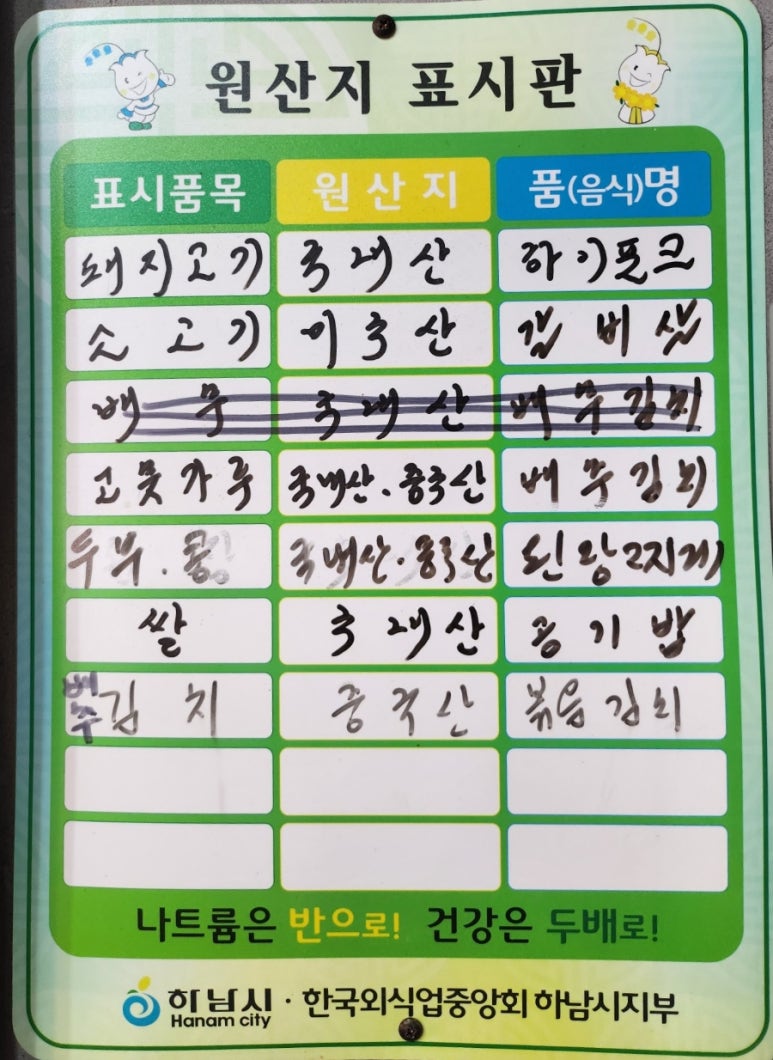 원산지 표시판
표시품목 원산지 품(음식)명
돼지고기 국내산 하이포크
소고기 미국산 갈비살
배추 국내산 배추김치
고춧가루 국내산.중국산 배추김치
두부.콩 국내산.중국산 된장찌개
쌀 국내산 공기밥
배추김치 중국산 볶음김치
나트륨은 반으로! 건강은 두배로!
하남시 · 한국외식업중앙회 하남시지부
Hanam city